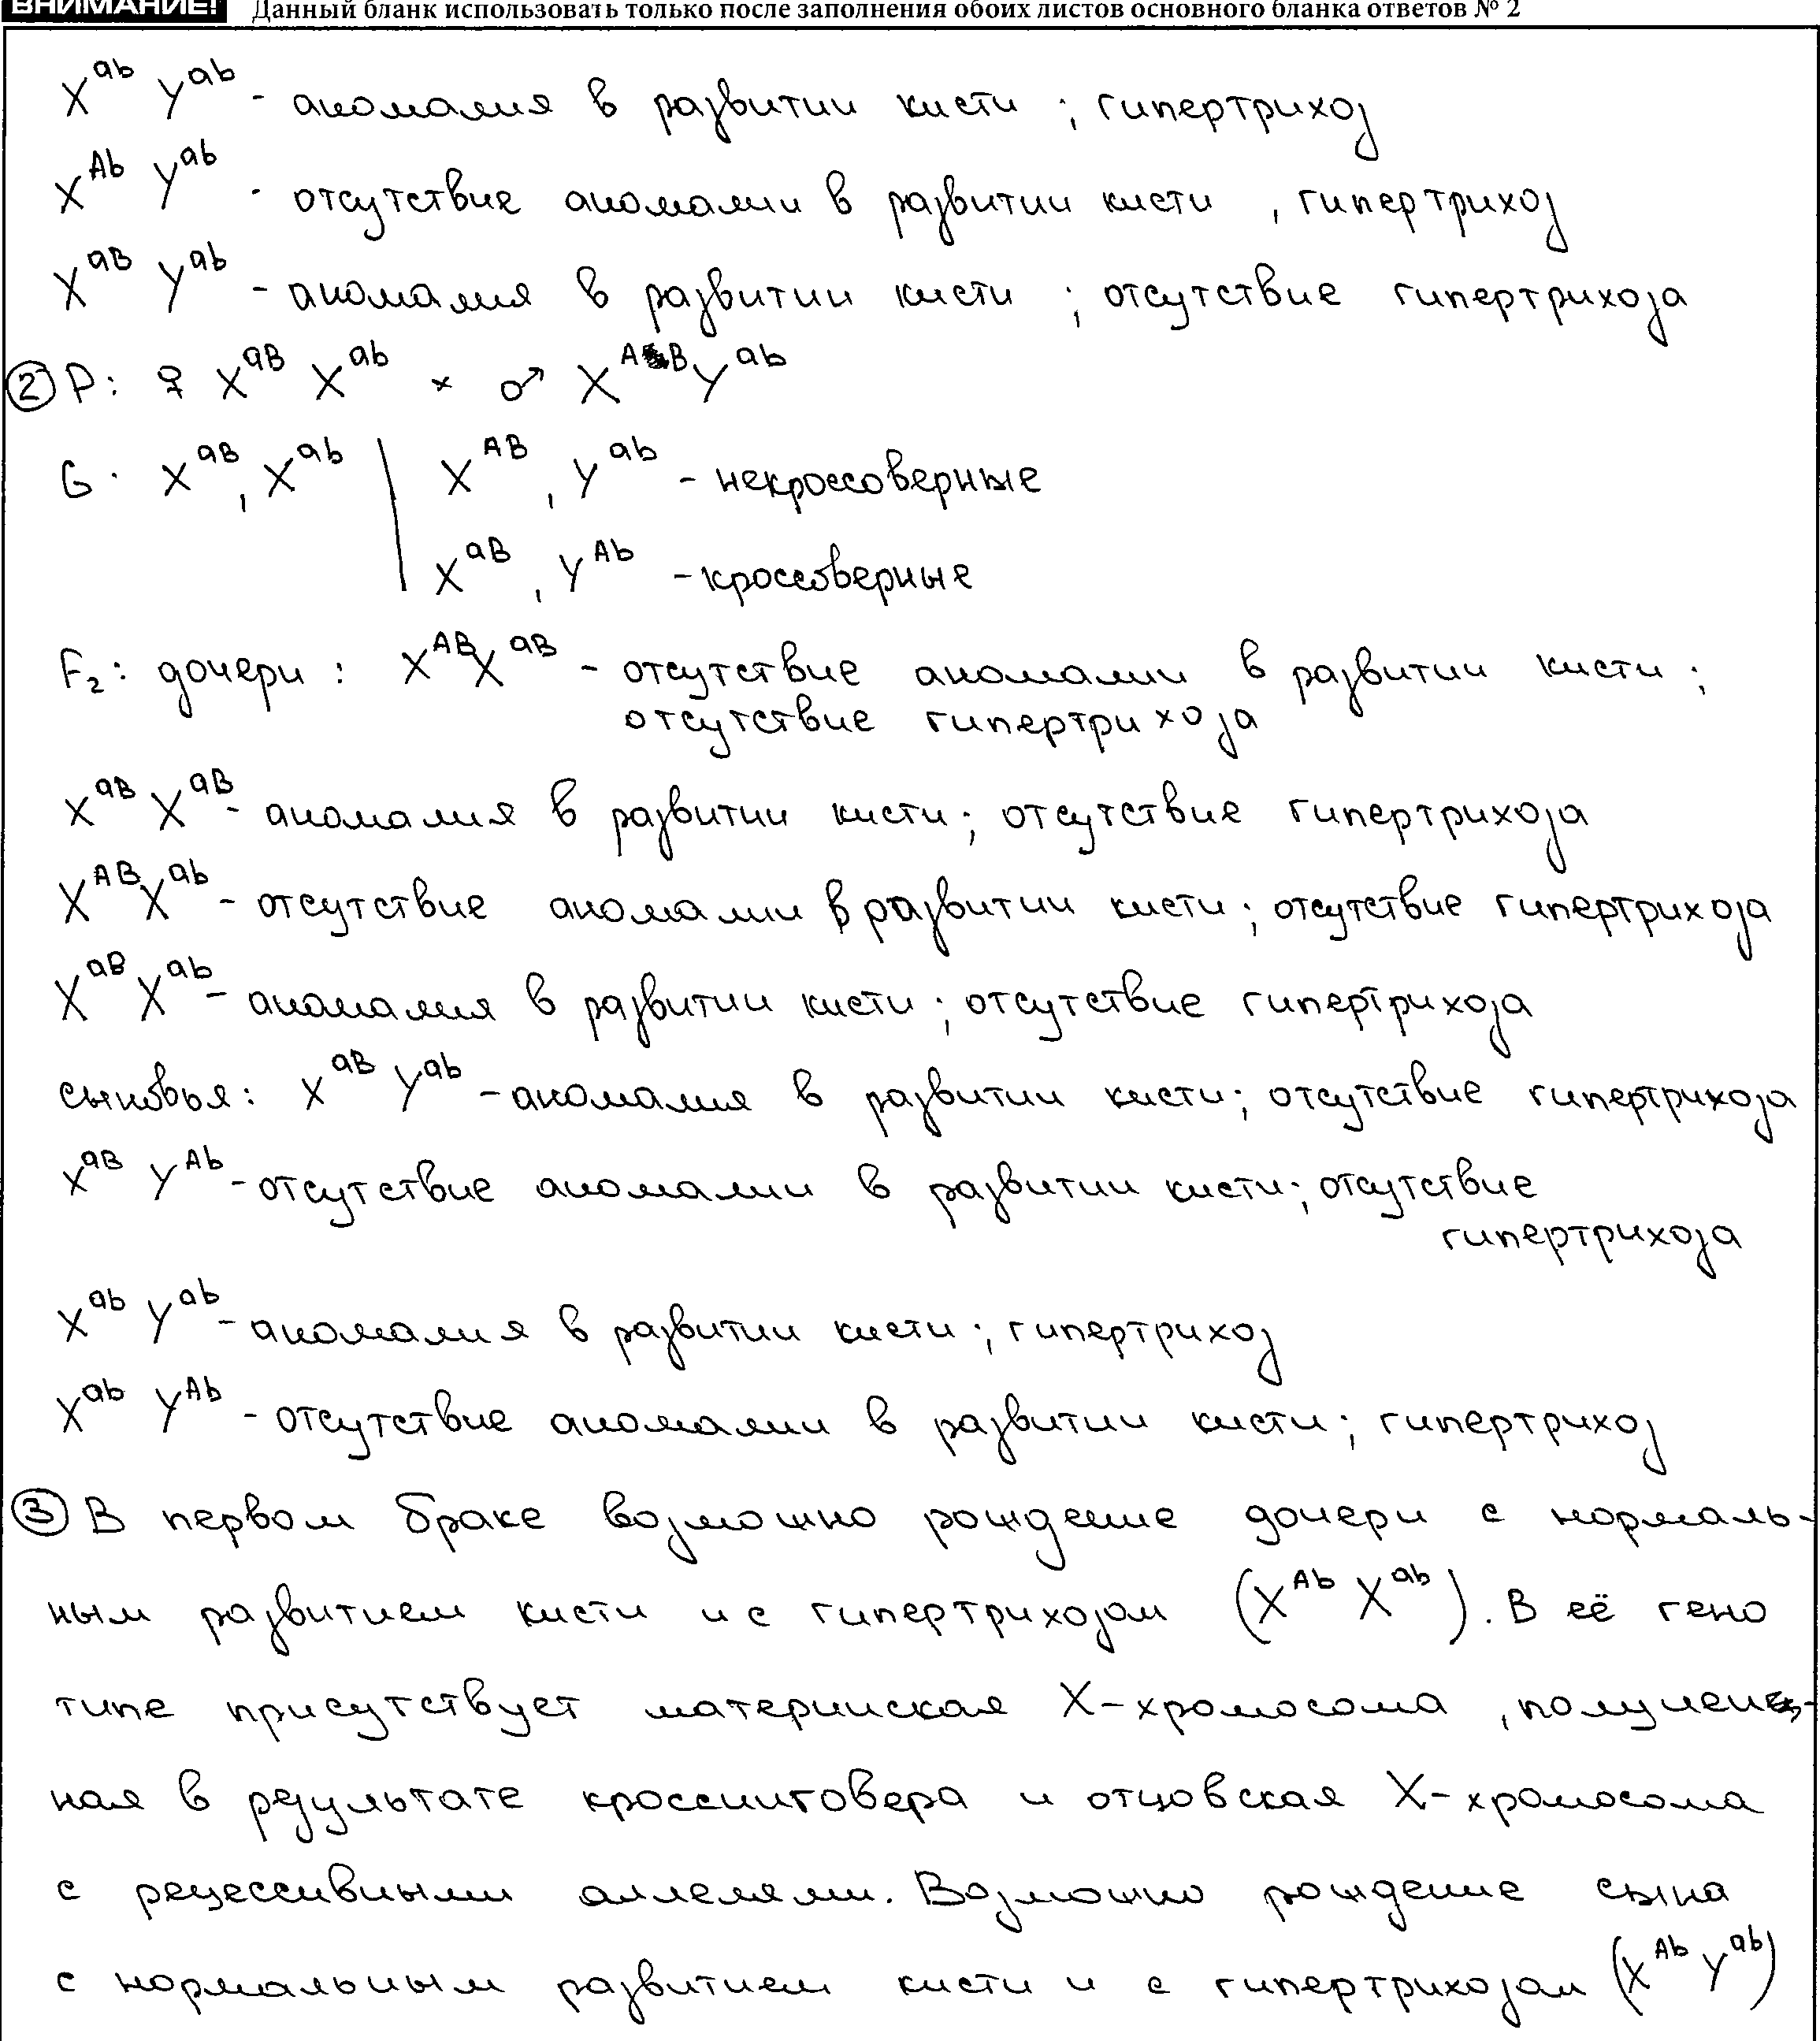 ВНИМАНИЕ! Данный бланк использовать только после заполнения обоих листов основного бланка ответов № 2
X^ab Y^ab - аномалия в развитии кисти ; гипертрихоз
X^Ab Y^ab - отсутствие аномалии в развитии кисти , гипертрихоз
X^aB Y^ab - аномалия в развитии кисти ; отсутствие гипертрихоза
② P: ♀ X^aB X^ab × ♂ X^AB Y^ab
G. X^aB, X^ab | X^AB, Y^ab - некроссоверные
X^aB, Y^Ab - кроссоверные
F₂: дочери: X^AB X^aB - отсутствие аномалии в развитии кисти;
отсутствие гипертрихоза
X^aB X^aB - аномалия в развитии кисти; отсутствие гипертрихоза
X^AB X^ab - отсутствие аномалии в развитии кисти; отсутствие гипертрихоза
X^aB X^ab - аномалия в развитии кисти; отсутствие гипертрихоза
сыновья: X^aB Y^ab - аномалия в развитии кисти; отсутствие гипертрихоза
X^aB Y^Ab - отсутствие аномалии в развитии кисти; отсутствие
гипертрихоза
X^ab Y^ab - аномалия в развитии кисти; гипертрихоз
X^ab Y^Ab - отсутствие аномалии в развитии кисти; гипертрихоз
③ В первом браке возможно рождение дочери с нормаль-
ным развитием кисти и с гипертрихозом (X^Ab X^ab). В её гено
типе присутствует материнская X-хромосома, получен-
ная в результате кроссинговера и отцовская X-хромосома
с рецессивными аллелями. Возможно рождение сына
с нормальным развитием кисти и с гипертрихозом (X^Ab Y^ab)